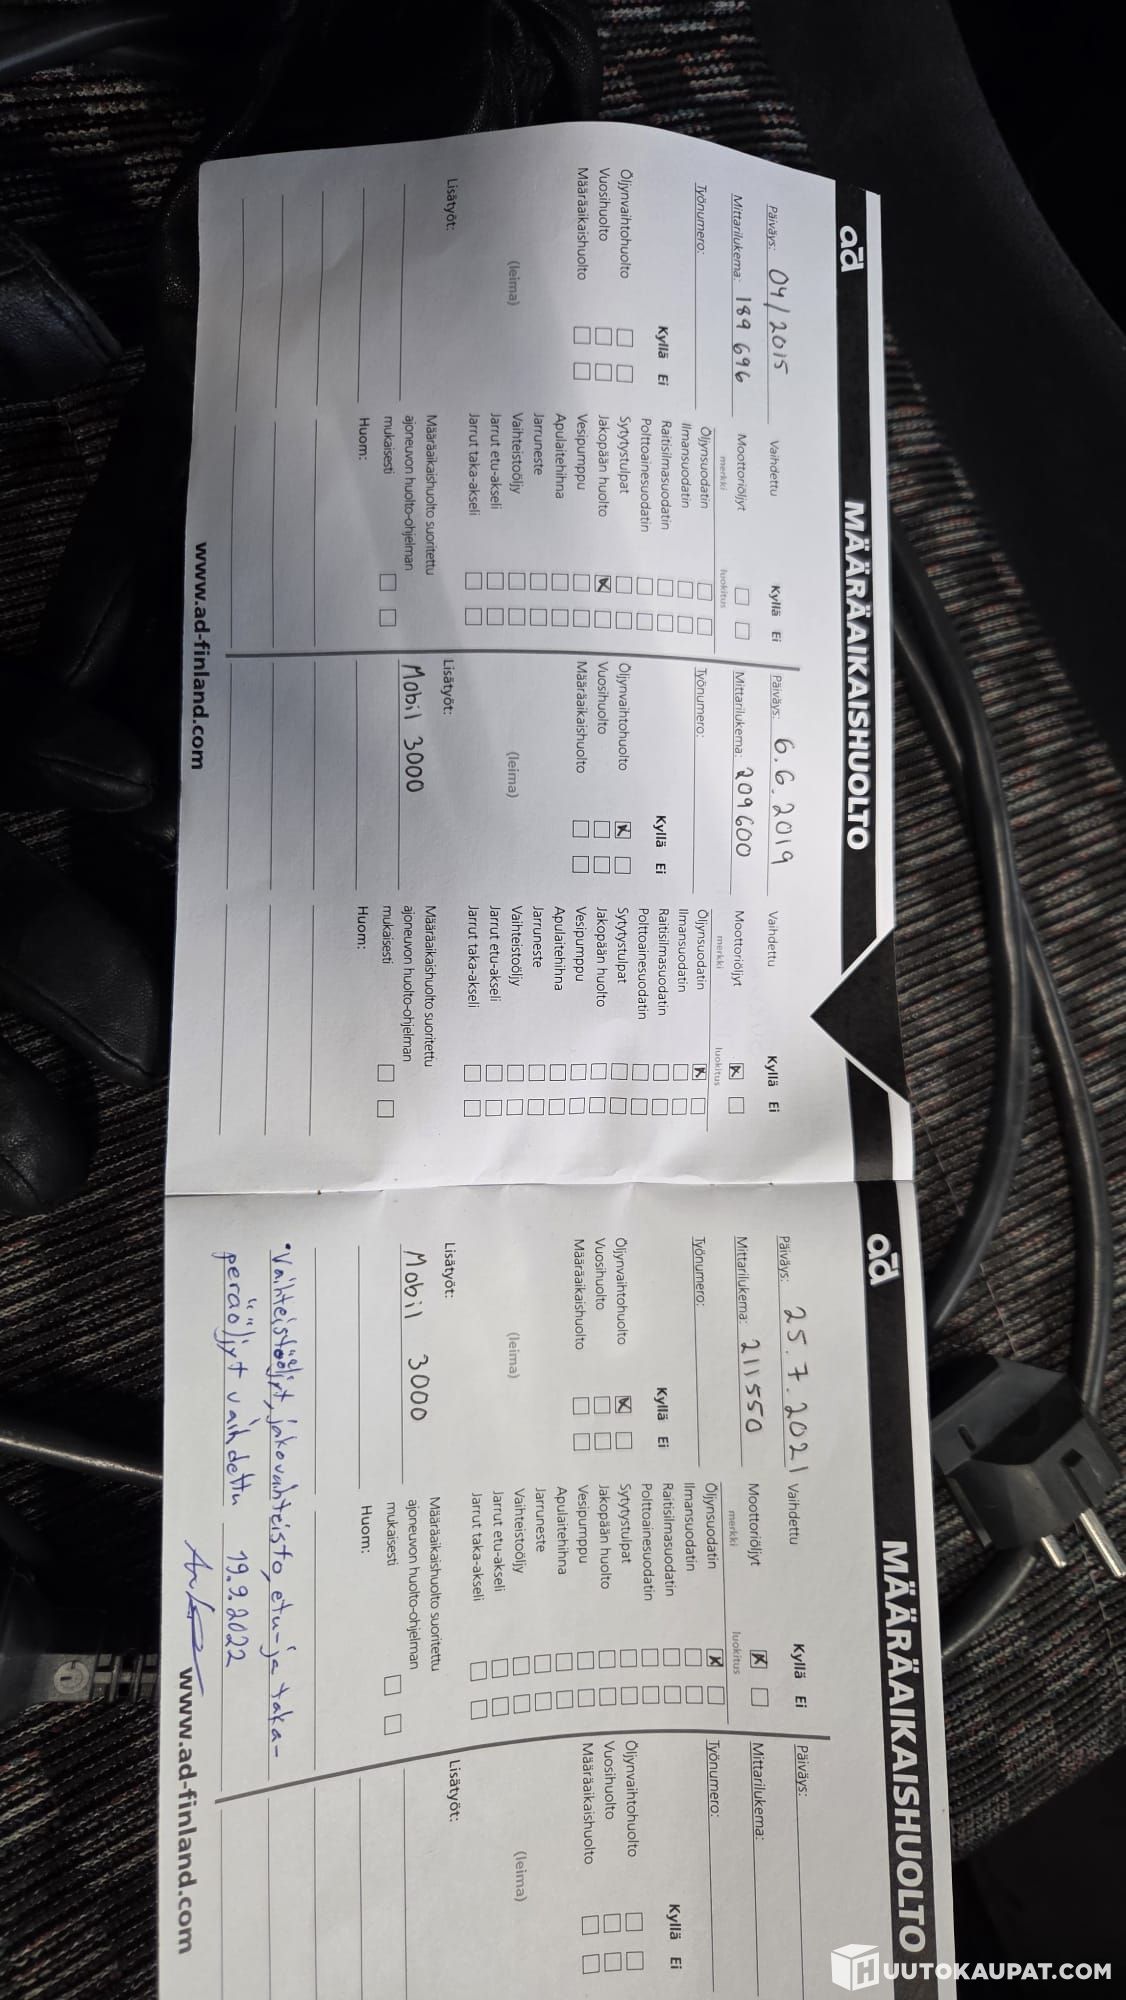 ad MÄÄRÄAIKAISHUOLTO
Päiväys: 04/2015
Mittarilukema: 189 696
Työnumero:
Kyllä Ei
Öljynvaihtohuolto
Vuosihuolto
Määräaikaishuolto
(leima)
Lisätyöt:
Vaihdettu Kyllä Ei
Moottoriöljyt
merkki luokitus
Öljynsuodatin
Ilmansuodatin
Raitisilmasuodatin
Polttoainesuodatin
Sytytystulpat
Jakopään huolto
Vesipumppu
Apulaitehihna
Jarruneste
Vaihteistoöljy
Jarrut etu-akseli
Jarrut taka-akseli
Määräaikaishuolto suoritettu
ajoneuvon huolto-ohjelman
mukaisesti
Huom:
Päiväys: 6.6.2019
Mittarilukema: 209600
Työnumero:
Kyllä Ei
Öljynvaihtohuolto
Vuosihuolto
Määräaikaishuolto
(leima)
Lisätyöt:
Mobil 3000
Vaihdettu Kyllä Ei
Moottoriöljyt
merkki luokitus
Öljynsuodatin
Ilmansuodatin
Raitisilmasuodatin
Polttoainesuodatin
Sytytystulpat
Jakopään huolto
Vesipumppu
Apulaitehihna
Jarruneste
Vaihteistoöljy
Jarrut etu-akseli
Jarrut taka-akseli
Määräaikaishuolto suoritettu
ajoneuvon huolto-ohjelman
mukaisesti
Huom:
www.ad-finland.com
ad MÄÄRÄAIKAISHUOLTO
Päiväys: 25.7.2021
Mittarilukema: 211550
Työnumero:
Kyllä Ei
Öljynvaihtohuolto
Vuosihuolto
Määräaikaishuolto
(leima)
Lisätyöt:
Mobil 3000
Vaihdettu Kyllä Ei
Moottoriöljyt
merkki luokitus
Öljynsuodatin
Ilmansuodatin
Raitisilmasuodatin
Polttoainesuodatin
Sytytystulpat
Jakopään huolto
Vesipumppu
Apulaitehihna
Jarruneste
Vaihteistoöljy
Jarrut etu-akseli
Jarrut taka-akseli
Määräaikaishuolto suoritettu
ajoneuvon huolto-ohjelman
mukaisesti
Huom:
• Vaihteistoöljyt, jakovaihteisto, etu-ja taka-
peräöljyt vaihdettu 19.9.2022
Päiväys:
Mittarilukema:
Työnumero:
Kyllä Ei
Öljynvaihtohuolto
Vuosihuolto
Määräaikaishuolto
(leima)
Lisätyöt:
www.ad-finland.com
HUUTOKAUPAT.COM